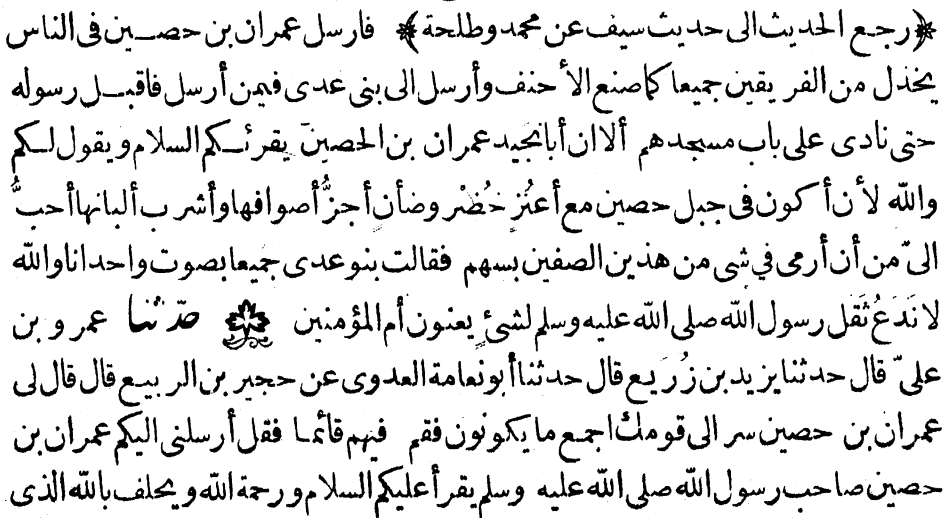 ﴿رجع الحديث الى حديث سيف عن محمد وطلحة﴾ فارسل عمران بن حصين فى الناس
يخذل من الفريقين جميعا كما صنع الأحنف وأرسل الى بنى عدى فيمن أرسل فاقبل رسوله
حتى نادى على باب مسجدهم ألا ان أبا نجيد عمران بن الحصين يقرئكم السلام ويقول لكم
والله لأن أكون فى جبل حصين مع أعنز خُضْر وضأن أجزُّ أصوافها وأشرب ألبانها أحبُّ
الىّ من أن أرمى فى شى من هذين الصفين بسهم فقالت بنو عدى جميعا بصوت واحد انا والله
لا نَدَعُ ثَقَل رسول الله صلى الله عليه وسلم لشئٍ يعنون أم المؤمنين حدّثنا عمرو بن
علىّ قال حدثنا يزيد بن زُرَيع قال حدثنا أبو نعامة العدوى عن حجير بن الربيع قال قال لى
عمران بن حصين سر الى قومك اجمع ما يكونون فقم فيهم قائما فقل أرسلنى اليكم عمران بن
حصين صاحب رسول الله صلى الله عليه وسلم يقرأ عليكم السلام ورحمة الله ويحلف بالله الذى